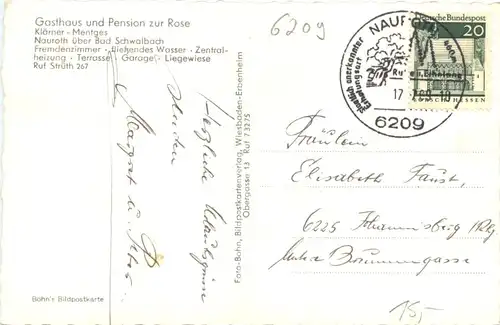 Gasthaus und Pension zur Rose
Klärner - Mentges
Nauroth über Bad Schwalbach
Fremdenzimmer - Fließendes Wasser - Zentral-
heizung - Terrasse - Garage - Liegewiese
Ruf Strüth 267
6209
Herzliche Urlaubsgrüße
senden
Margret u.
Foto-Bohn, Bildpostkartenverlag, Wiesbaden-Erbenheim
Obergasse 13 Ruf 73275
NAUROTH
staatlich anerkannter
Erholungsort
Ruhe u. Erholung
17
6209
Deutsche Bundespost
20
LORSCH HESSEN
Fräulein
Elisabeth Faust,
6225 Johannisberg Rhg
Brunnengasse
15,-
Bohn's Bildpostkarte